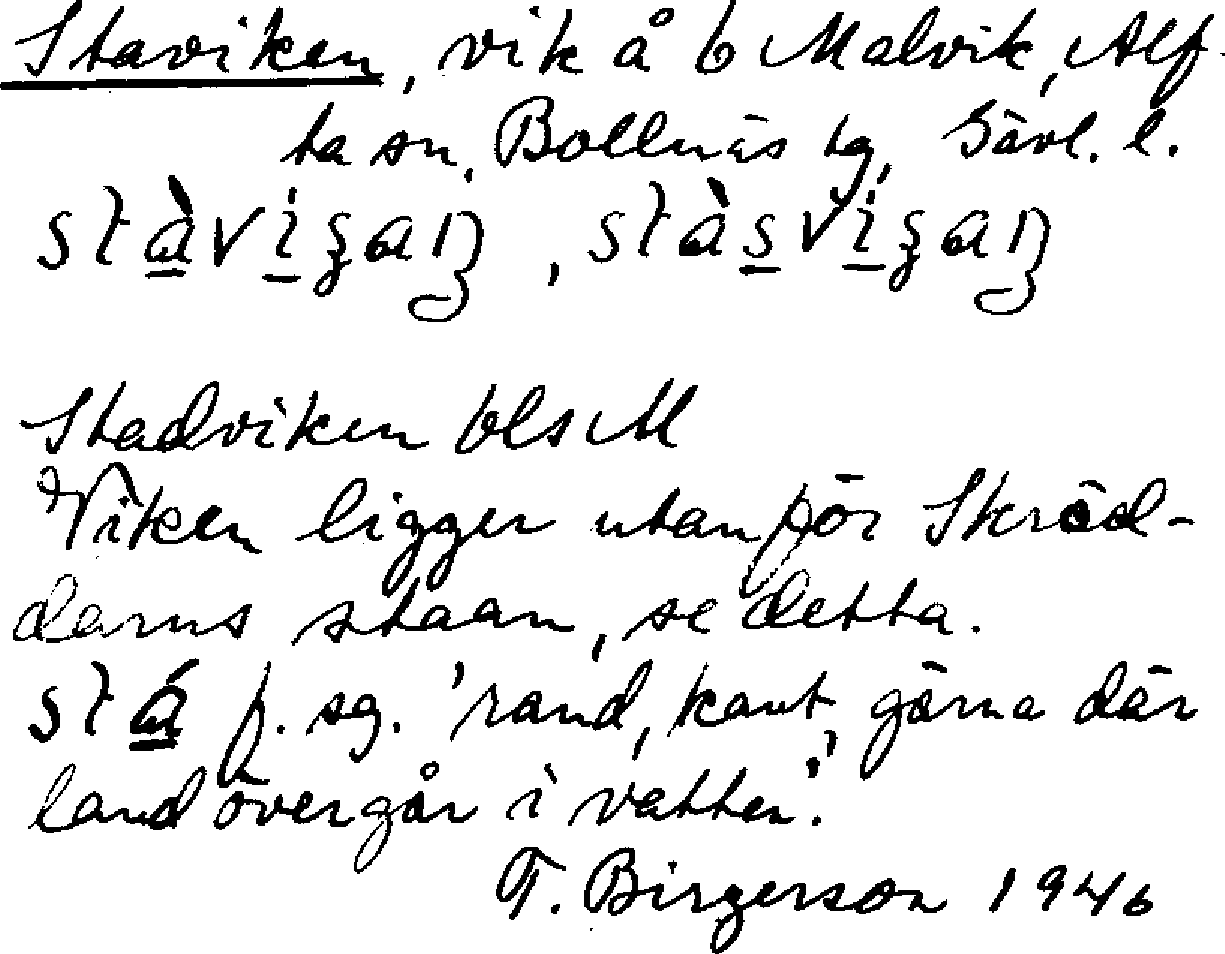 Staviken, vik å b Malvik, Alf-
ta sn, Bollnäs tg, Gävl. l.
stàviʒaŋ, stàsviʒaŋ
Stadviken bls M
Viken ligger utanför Skräd-
darns staan, se detta.
stá f. sg. 'rand, kant, gärna där
land övergår i vatten.'
T. Birgerson 1946